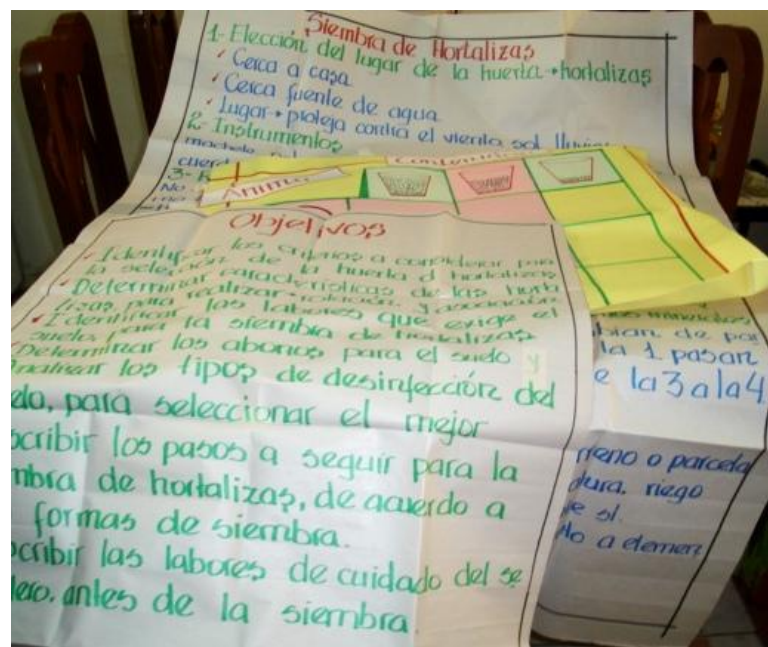 Siembra de Hortalizas
1-Elección del lugar de la huerta→hortalizas
Cerca a casa
Cerca fuente de agua
Lugar→proteja contra el viento sol lluvia
2-Instrumentos
machete
cuerd
3-
No
Objetivos
Identificar los criterios a considerar para
la selección de la huerta d hortalizas
Determinar características de las horta
lizas para realizar rotación y asociación
Identificar las labores que exige el
suelo para la siembra de hortalizas
Determinar los abonos para el suelo y
nalizar los tipos de desinfección del
elo, para seleccionar el mejor
scribir los pasos a seguir para la
mbra de hortalizas, de acuerdo a
formas de siembra.
scribir las labores de cuidado del se
llero. antes de la siembra.
minerales
bian de par
la 1 pasan
e la 3 a la 4
rreno o parcela
dura. riego